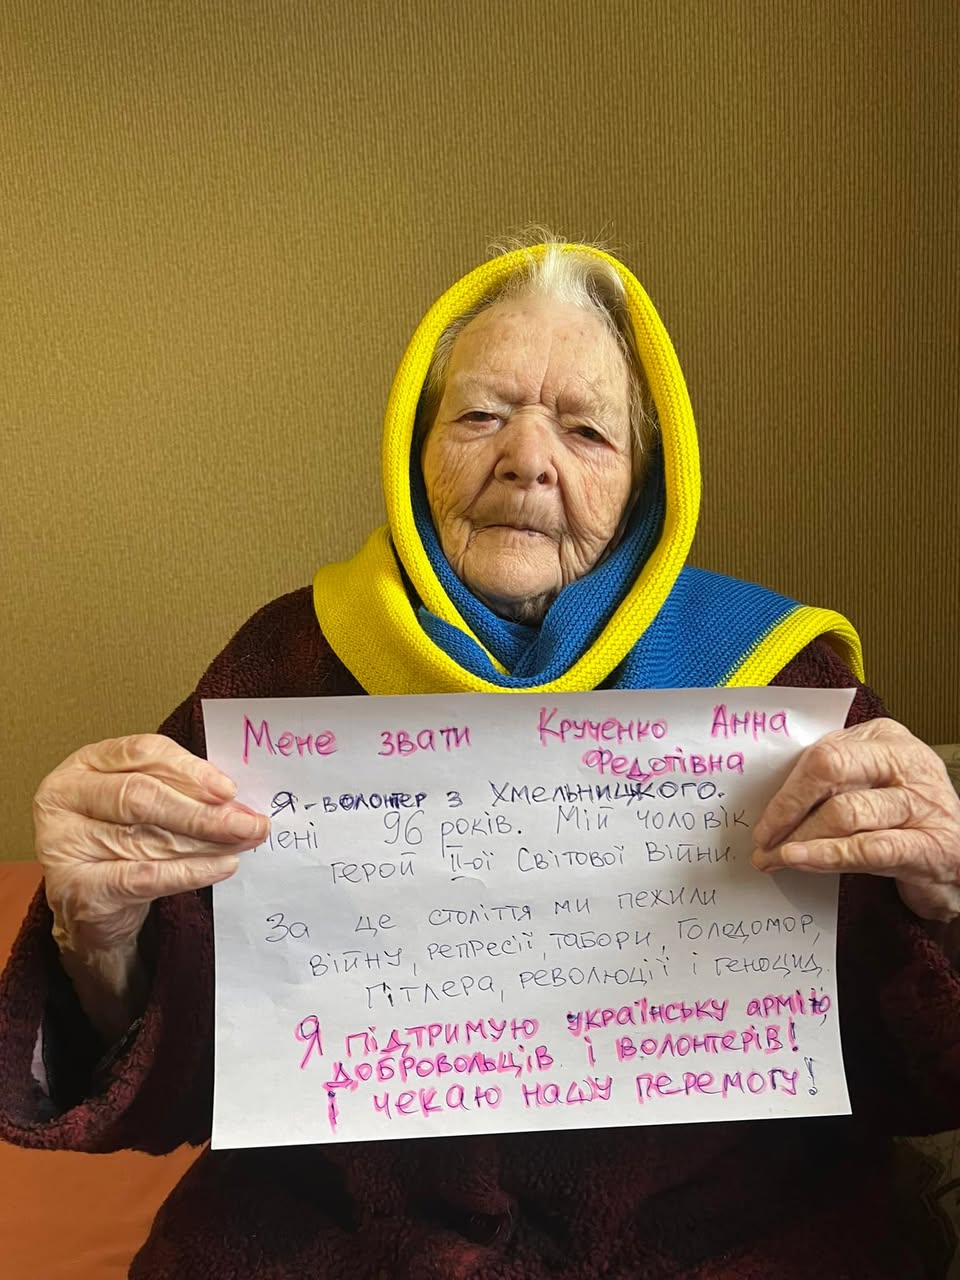 Мене звати Крученко Анна
Федотівна
Я - волонтер з Хмельницького.
Мені 96 років. Мій чоловік
герой ІІ-ої Світової Війни.
За це століття ми пежили
війну, репресії, табори, Голодомор,
Гітлера, революції і геноцид.
Я підтримую українську армію,
добровольців і волонтерів!
І чекаю нашу перемогу!